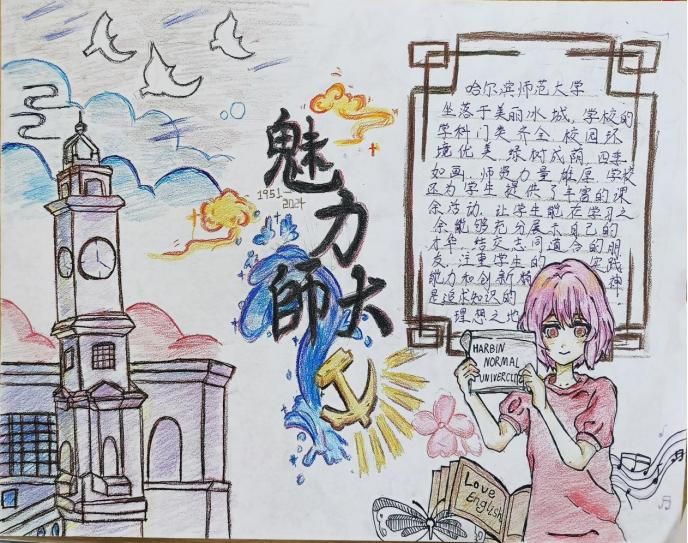 魅力師大
1951-
2024
哈尔滨师范大学
坐落于美丽冰城,学校的
学科门类齐全,校园环
境优美,绿树成荫,四季
如画,师资力量雄厚,学校
还为学生提供了丰富的课
余活动,让学生能在学习之
余能够充分展示自己的
才华,结交志同道合的朋
友,注重学生的 实践
能力和创新精 神,
是追求知识的
理想之地
HARBIN
NORMAL
UNIVERCLITY
Love
English